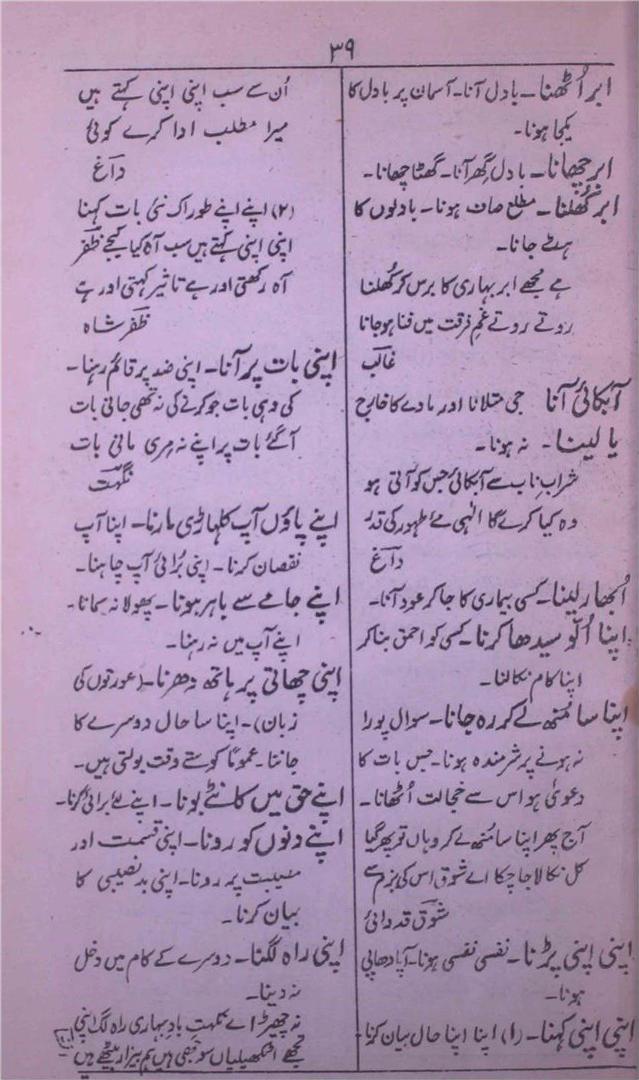 ۳۹
ابر اُٹھنا۔ بادل آنا۔ آسمان پر بادل کا
یکجا ہونا۔
ابر چھانا۔ بادل گھر آنا۔ گھٹا چھانا۔
ابر کُھلنا۔ مطلع صاف ہونا۔ بادلوں کا
ہٹ جانا۔
ہے مجھے ابر بہاری کا برس کر کُھلنا
روتے روتے غمِ فرقت میں فنا ہو جانا
غالب
آبکائی آنا جی متلانا اور مادے کا خارج
یا لینا۔ نہ ہونا۔
شرابِ ناب سے آبکائی جس کو آتی ہو
وہ کیا کرے گا الٰہی مئے طہور کی قدر
داغ
اُبھار لینا۔ کسی بیماری کا جا کر عود آنا۔
اپنا اُلّو سیدھا کرنا۔ کسی کو احمق بنا کر
اپنا کام نکالنا۔
اپنا سا مُنھ لے کر رہ جانا۔ سوال پورا
نہ ہونے پر شرمندہ ہونا۔ جس بات کا
دعویٰ ہو اس سے خجالت اُٹھانا۔
آج پھر اپنا سا مُنھ لے کر وہاں تو پھر گیا
کل نکالا جا چکا اے شوق اس کی بزم سے
شوق قدوائی
اپنی اپنی پڑنا۔ نفسی نفسی ہونا۔ آپا دھاپی
ہونا۔
اپنی اپنی کہنا۔ (۱) اپنا اپنا حال بیان کرنا۔
اُن سے سب اپنی اپنی کہتے ہیں
میرا مطلب ادا کرے کوئی
داغ
(۲) اپنے اپنے طور اک نئی بات کہنا
اپنی اپنی کہتے ہیں سب آہ کیا کیجے ظفر
آہ رکھتی اور ہے تاثیر کہتی اور ہے
ظفر شاہ
اپنی بات پر آنا۔ اپنی ضد پر قائم رہنا۔
کی وہی بات جو کرنے کی نہ تھی جانی بات
آگئے بات پر اپنے نہ مری مانی بات
نگہت
اپنے پاؤں آپ کلہاڑی مارنا۔ اپنا آپ
نقصان کرنا۔ اپنی بُرائی آپ چاہنا۔
اپنے جامے سے باہر ہونا۔ پھولا نہ سمانا۔
اپنے آپ میں نہ رہنا۔
اپنی چھاتی پر ہاتھ دھرنا۔ (عورتوں کی
زبان)۔ اپنا سا حال دوسرے کا
جاننا۔ عموماً کوستے وقت بولتی ہیں۔
اپنے حق میں کانٹے بونا۔ اپنے لئے برائی کرنا۔
اپنے دنوں کو رونا۔ اپنی قسمت اور
مصیبت پر رونا۔ اپنی بد نصیبی کا
بیان کرنا۔
اپنی راہ لگنا۔ دوسرے کے کام میں دخل
نہ دینا۔
نہ چھیڑ اے نکہتِ بادِ بہاری راہ لگ اپنی
تجھے اٹکھیلیاں سوجھی ہیں ہم بیزار بیٹھے ہیں